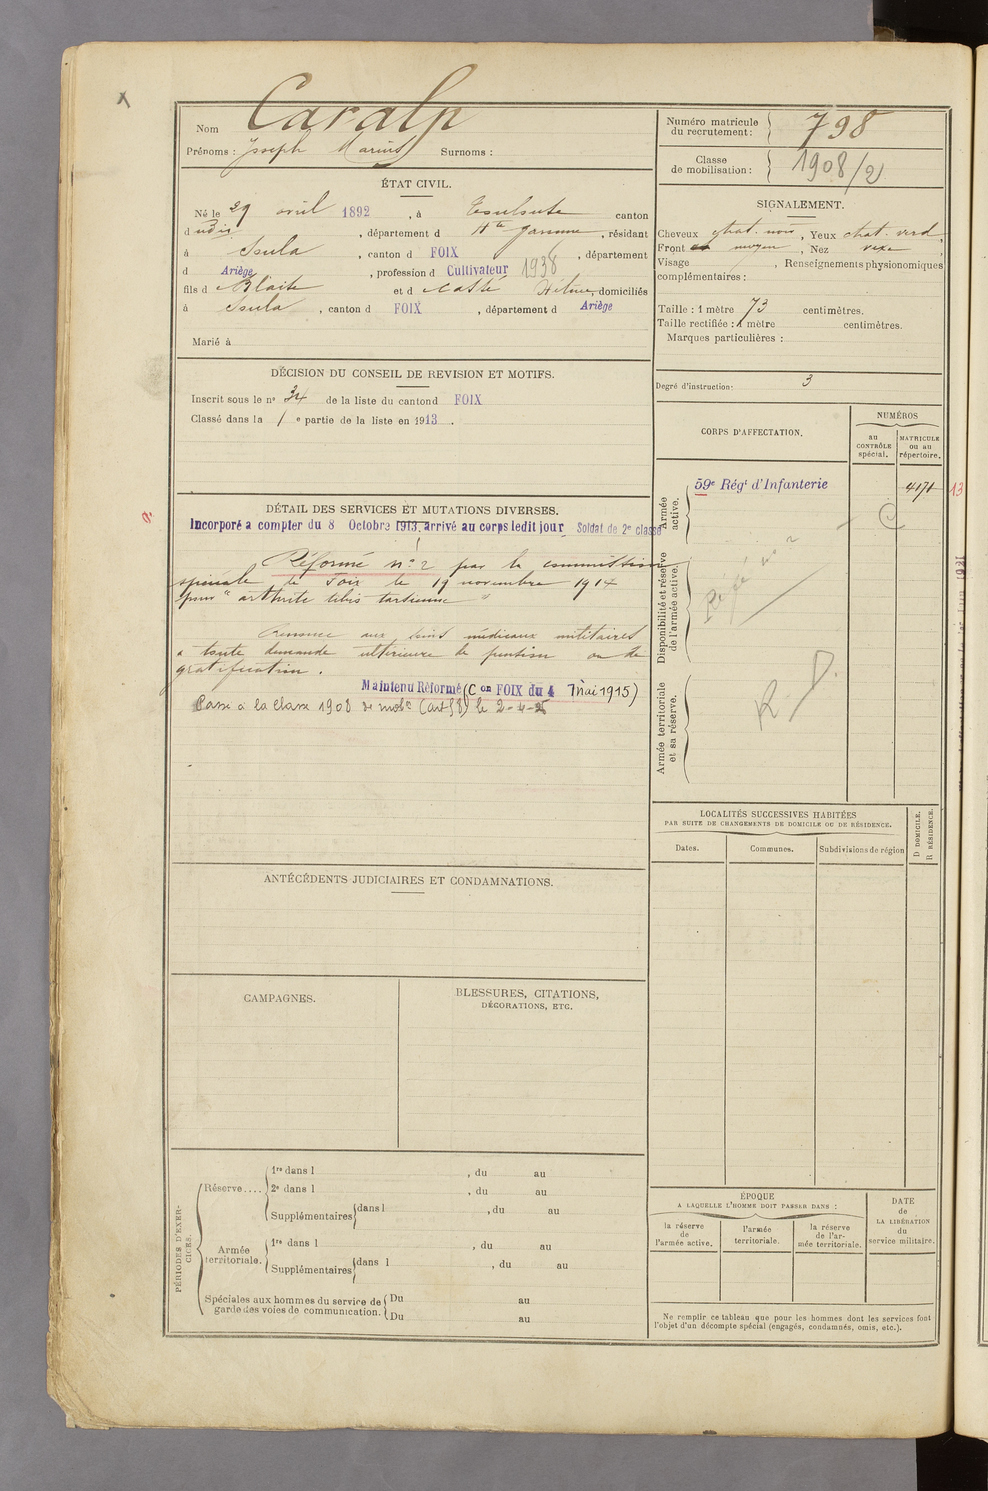 X
Nom Caralp
Prénoms : Joseph Marius Surnoms :
Numéro matricule du recrutement : 798
Classe de mobilisation : 1908/2
ÉTAT CIVIL.
Né le 29 avril 1892, à canton
d , département d Hte Garonne, résidant
à , canton d FOIX, département
d Ariège, profession d Cultivateur 1938
fils d Blaise et d , domiciliés
à , canton d FOIX, département d Ariège
Marié à
SIGNALEMENT.
Cheveux chat. noir, Yeux chat. verd.
Front moyen, Nez vexe
Visage , Renseignements physionomiques
complémentaires :
Taille : 1 mètre 73 centimètres.
Taille rectifiée : 1 mètre centimètres.
Marques particulières :
Degré d'instruction : 3
DÉCISION DU CONSEIL DE REVISION ET MOTIFS.
Inscrit sous le no 34 de la liste du canton d FOIX
Classé dans la 1 e partie de la liste en 1913.
CORPS D'AFFECTATION.
NUMÉROS
au CONTRÔLE spécial.
MATRICULE ou au répertoire.
Armée active.
59e Régt d'Infanterie
4171
13
C
Disponibilité et réserve de l'armée active.
Réfé no 2
Armée territoriale et sa réserve.
R D.
DÉTAIL DES SERVICES ET MUTATIONS DIVERSES.
Incorporé a compter du 8 Octobre 1913, arrivé au corps ledit jour Soldat de 2e classe
Réformé no 2 par la commission
spéciale de Foix le 19 novembre 1914
pour "arthrite tibio tarsienne"
Renonce aux soins médicaux militaires
a toute demande ultérieure de pension ou de
gratification.
Maintenu Réformé (Con FOIX du 4 mai 1915)
Passé à la classe 1908 de mobe (art 58) le 2-4-25
LOCALITÉS SUCCESSIVES HABITÉES
PAR SUITE DE CHANGEMENTS DE DOMICILE OU DE RÉSIDENCE.
D DOMICILE.
R RÉSIDENCE.
Dates.
Communes.
Subdivisions de région
ANTÉCÉDENTS JUDICIAIRES ET CONDAMNATIONS.
CAMPAGNES.
BLESSURES, CITATIONS,
DÉCORATIONS, ETC.
PÉRIODES D'EXERCICES.
Réserve....
1re dans l , du au
2e dans l , du au
Supplémentaires dans l , du au
Armée territoriale.
1re dans l , du au
Supplémentaires dans l , du au
Spéciales aux hommes du service de
garde des voies de communication.
Du au
Du au
ÉPOQUE
A LAQUELLE L'HOMME DOIT PASSER DANS :
la réserve de l'armée active.
l'armée territoriale.
la réserve de l'armée territoriale.
DATE
de
LA LIBÉRATION
du
service militaire.
Ne remplir ce tableau que pour les hommes dont les services font
l'objet d'un décompte spécial (engagés, condamnés, omis, etc.).